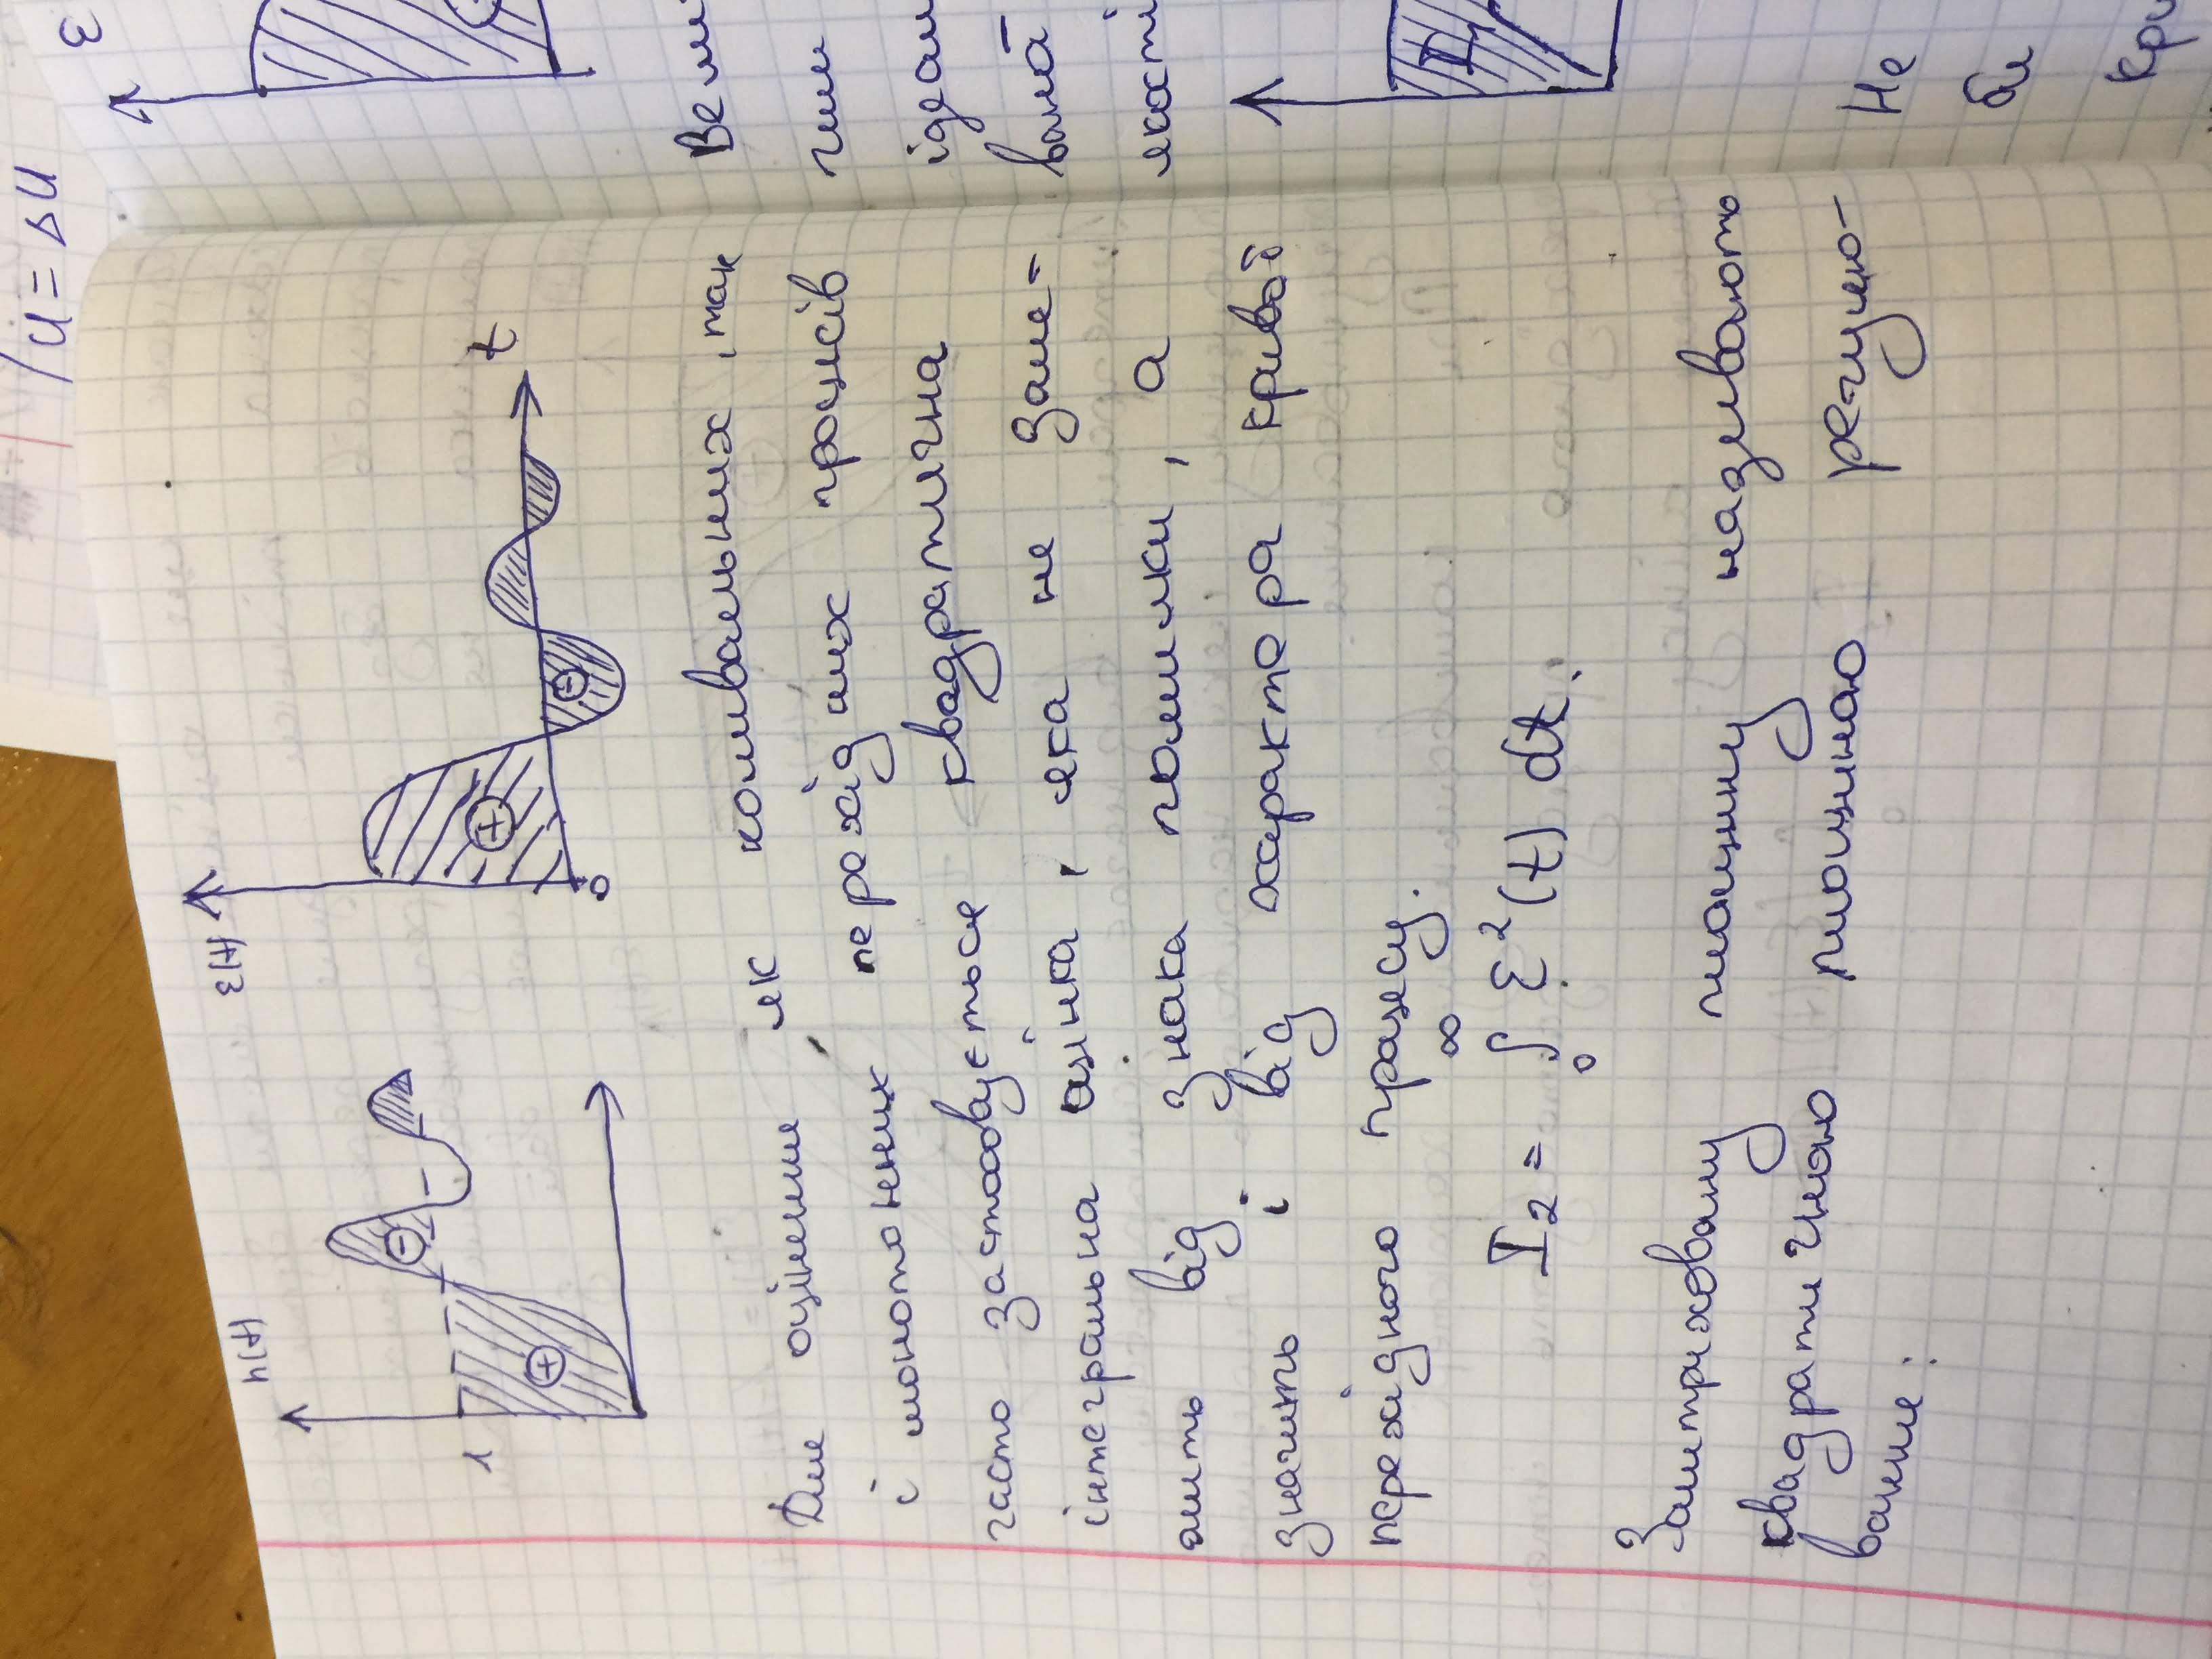 h(t)
1
+
-
ε(t)
+
-
0
t
Для оцінення як коливальних, так
і монотонних перехідних процесів
часто застосовується квадратична
інтегральна оцінка, яка не зале-
жить від знака помилки, а
значить і від характера кривої
перехідного процесу.
I₂ = ∫₀^∞ ε²(t) dt.
Заштриховану площину називають
квадратичною площиною регулю-
вання:
/U = ΔU
ε
якості
Не